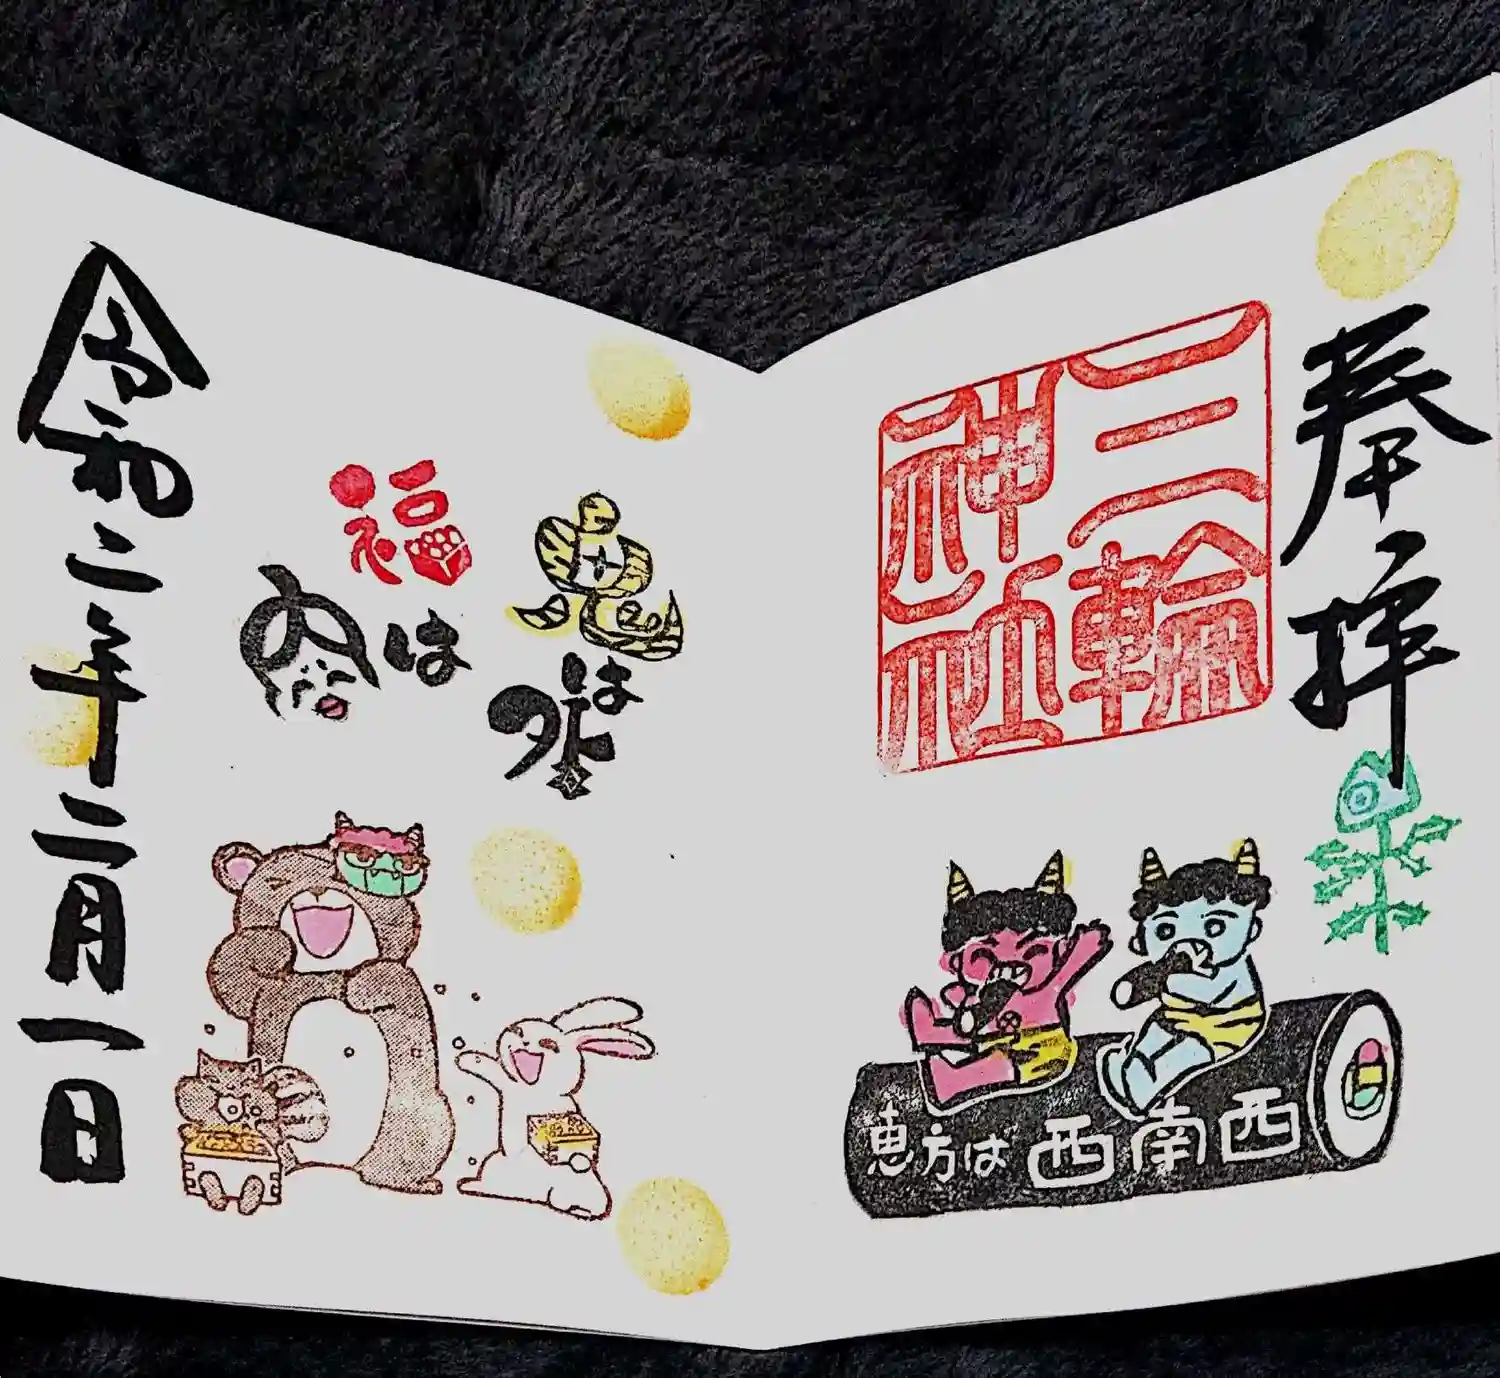 奉拝
三輪
神社
恵方は西南西
鬼は
外
福は
内
令和二年二月一日